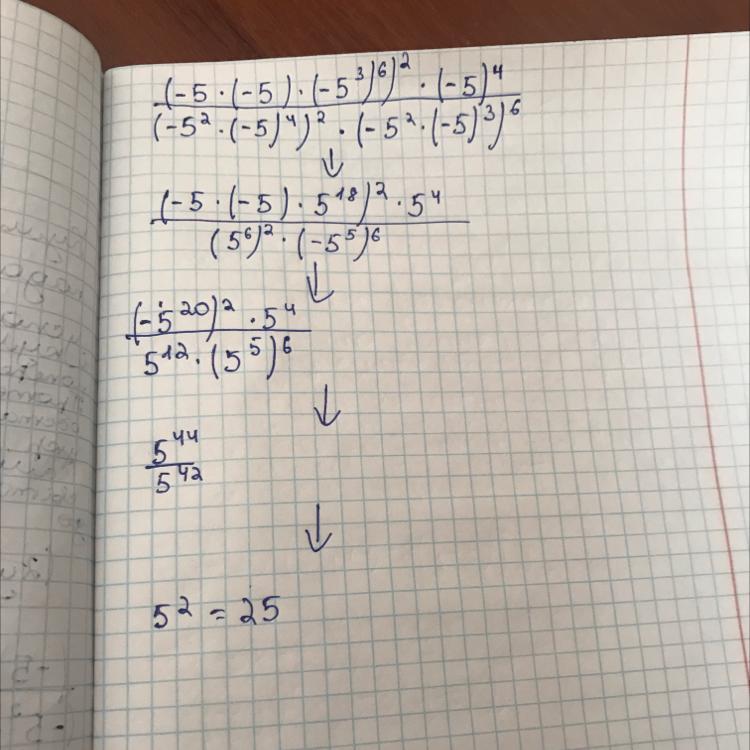 (-5 · (-5) · (-5³)⁶)² · (-5)⁴
(-5² · (-5)⁴)² · (-5² · (-5)³)⁶
↓
(-5 · (-5) · 5¹⁸)² · 5⁴
(5⁶)² · (-5⁵)⁶
↓
(-5²⁰)² · 5⁴
5¹² · (5⁵)⁶
↓
5⁴⁴
5⁴²
↓
5² = 25